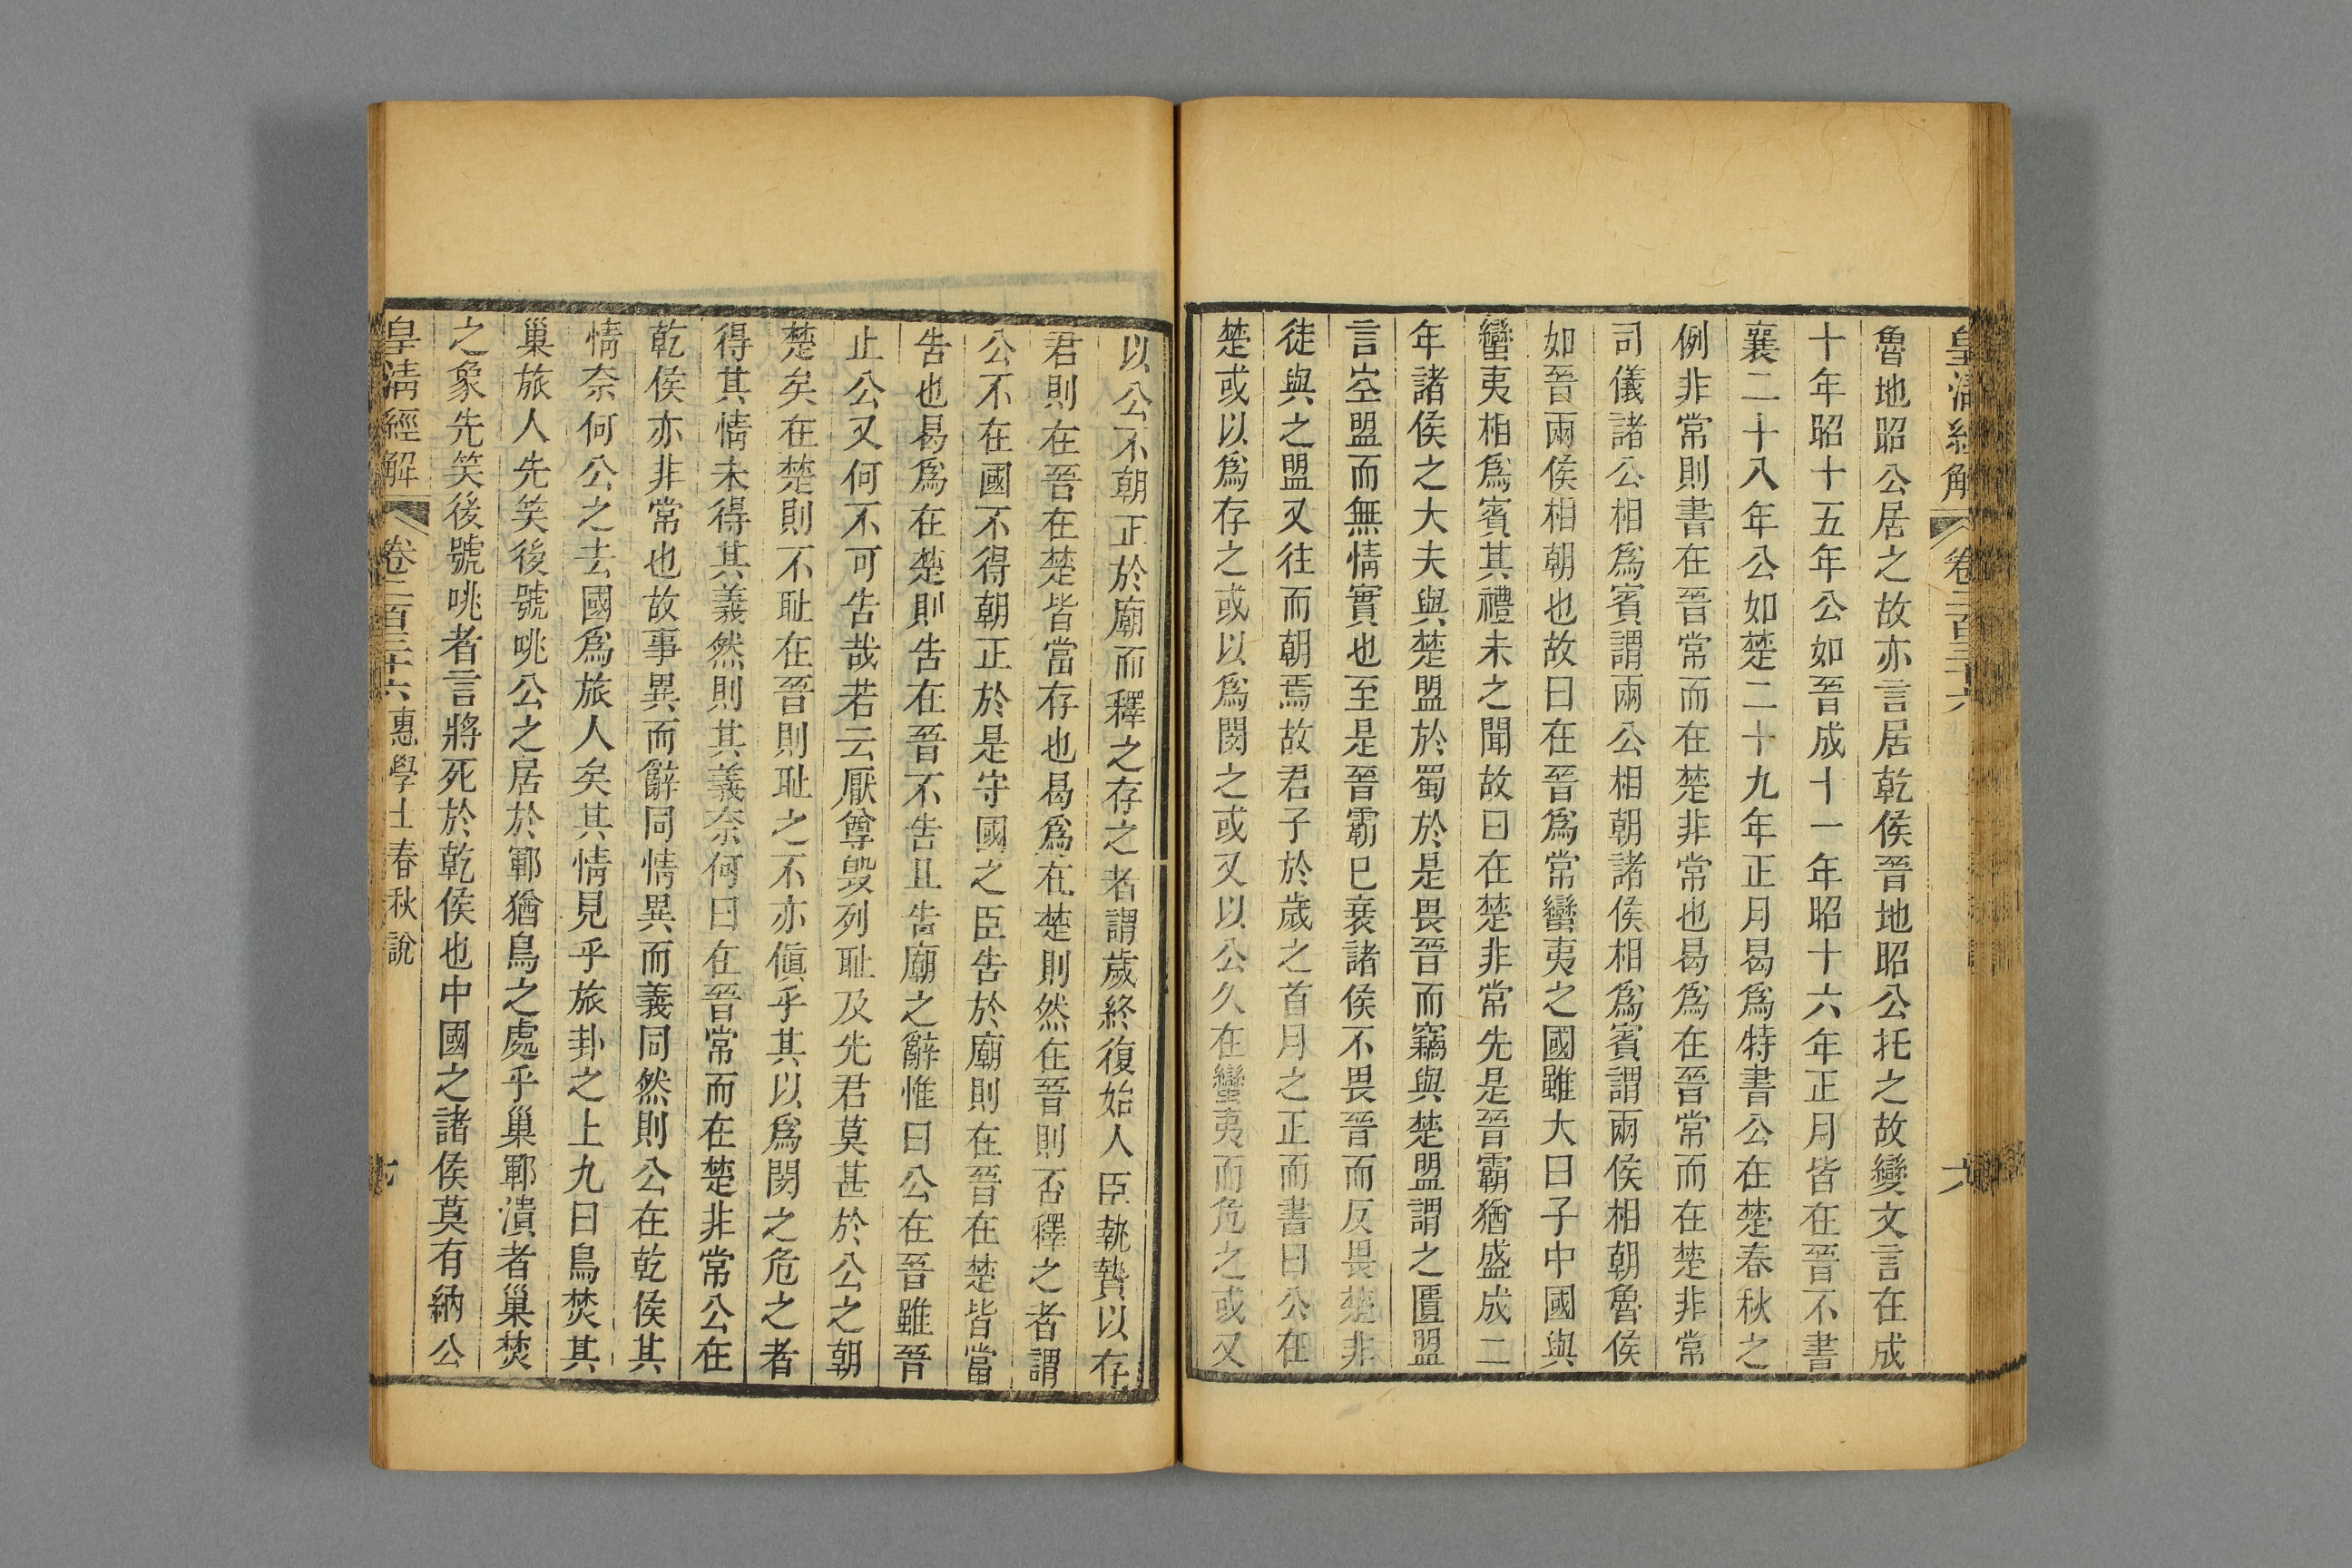 皇清經解 卷二百三十六 六
魯地昭公居之故亦言居乾侯晉地昭公托之故變文言在成
十年昭十五年公如晉成十一年昭十六年正月皆在晉不書
襄二十八年公如楚二十九年正月曷爲特書公在楚春秋之
例非常則書在晉常而在楚非常也曷爲在晉常而在楚非常
司儀諸公相爲賓謂兩公相朝諸侯相爲賓謂兩侯相朝魯侯
如晉兩侯相朝也故曰在晉爲常蠻夷之國雖大曰子中國與
蠻夷相爲賓其禮未之聞故曰在楚非常先是晉霸猶盛成二
年諸侯之大夫與楚盟於蜀於是畏晉而竊與楚盟謂之匱盟
言空盟而無情實也至是晉霸已衰諸侯不畏晉而反畏楚非
徒與之盟又往而朝焉故君子於歲之首月之正而書曰公在
楚或以爲存之或以爲閔之或又以公久在蠻夷而危之或又
以公不朝正於廟而釋之存之者謂歲終復始人臣執贄以存
君則在晉在楚皆當存也曷爲在楚則然在晉則否釋之者謂
公不在國不得朝正於是守國之臣告於廟則在晉在楚皆當
告也曷爲在楚則告在晉不告且告廟之辭惟曰公在晉雖晉
止公又何不可告哉若云厭尊毀列耻及先君莫甚於公之朝
楚矣在楚則不耻在晉則耻之不亦傎乎其以爲閔之危之者
得其情未得其義然則其義奈何曰在晉常而在楚非常公在
乾侯亦非常也故事異而辭同情異而義同然則公在乾侯其
情奈何公之去國爲旅人矣其情見乎旅卦之上九曰鳥焚其
巢旅人先笑後號咷公之居於鄆猶鳥之處乎巢鄆潰者巢焚
之象先笑後號咷者言將死於乾侯也中國之諸侯莫有納公
皇清經解 卷二百三十六 惠學士春秋說 七